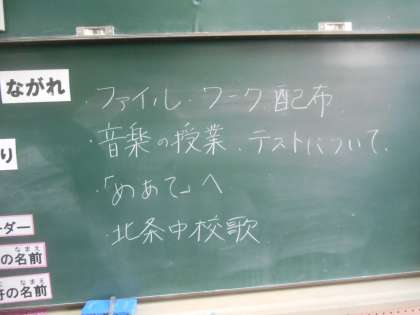 ながれ
・ファイル・ワーク配布
・音楽の授業、テストについて.
・「めあて」へ
・北条中校歌
り
ーダー
の名前
なまえ
の名前
なまえ